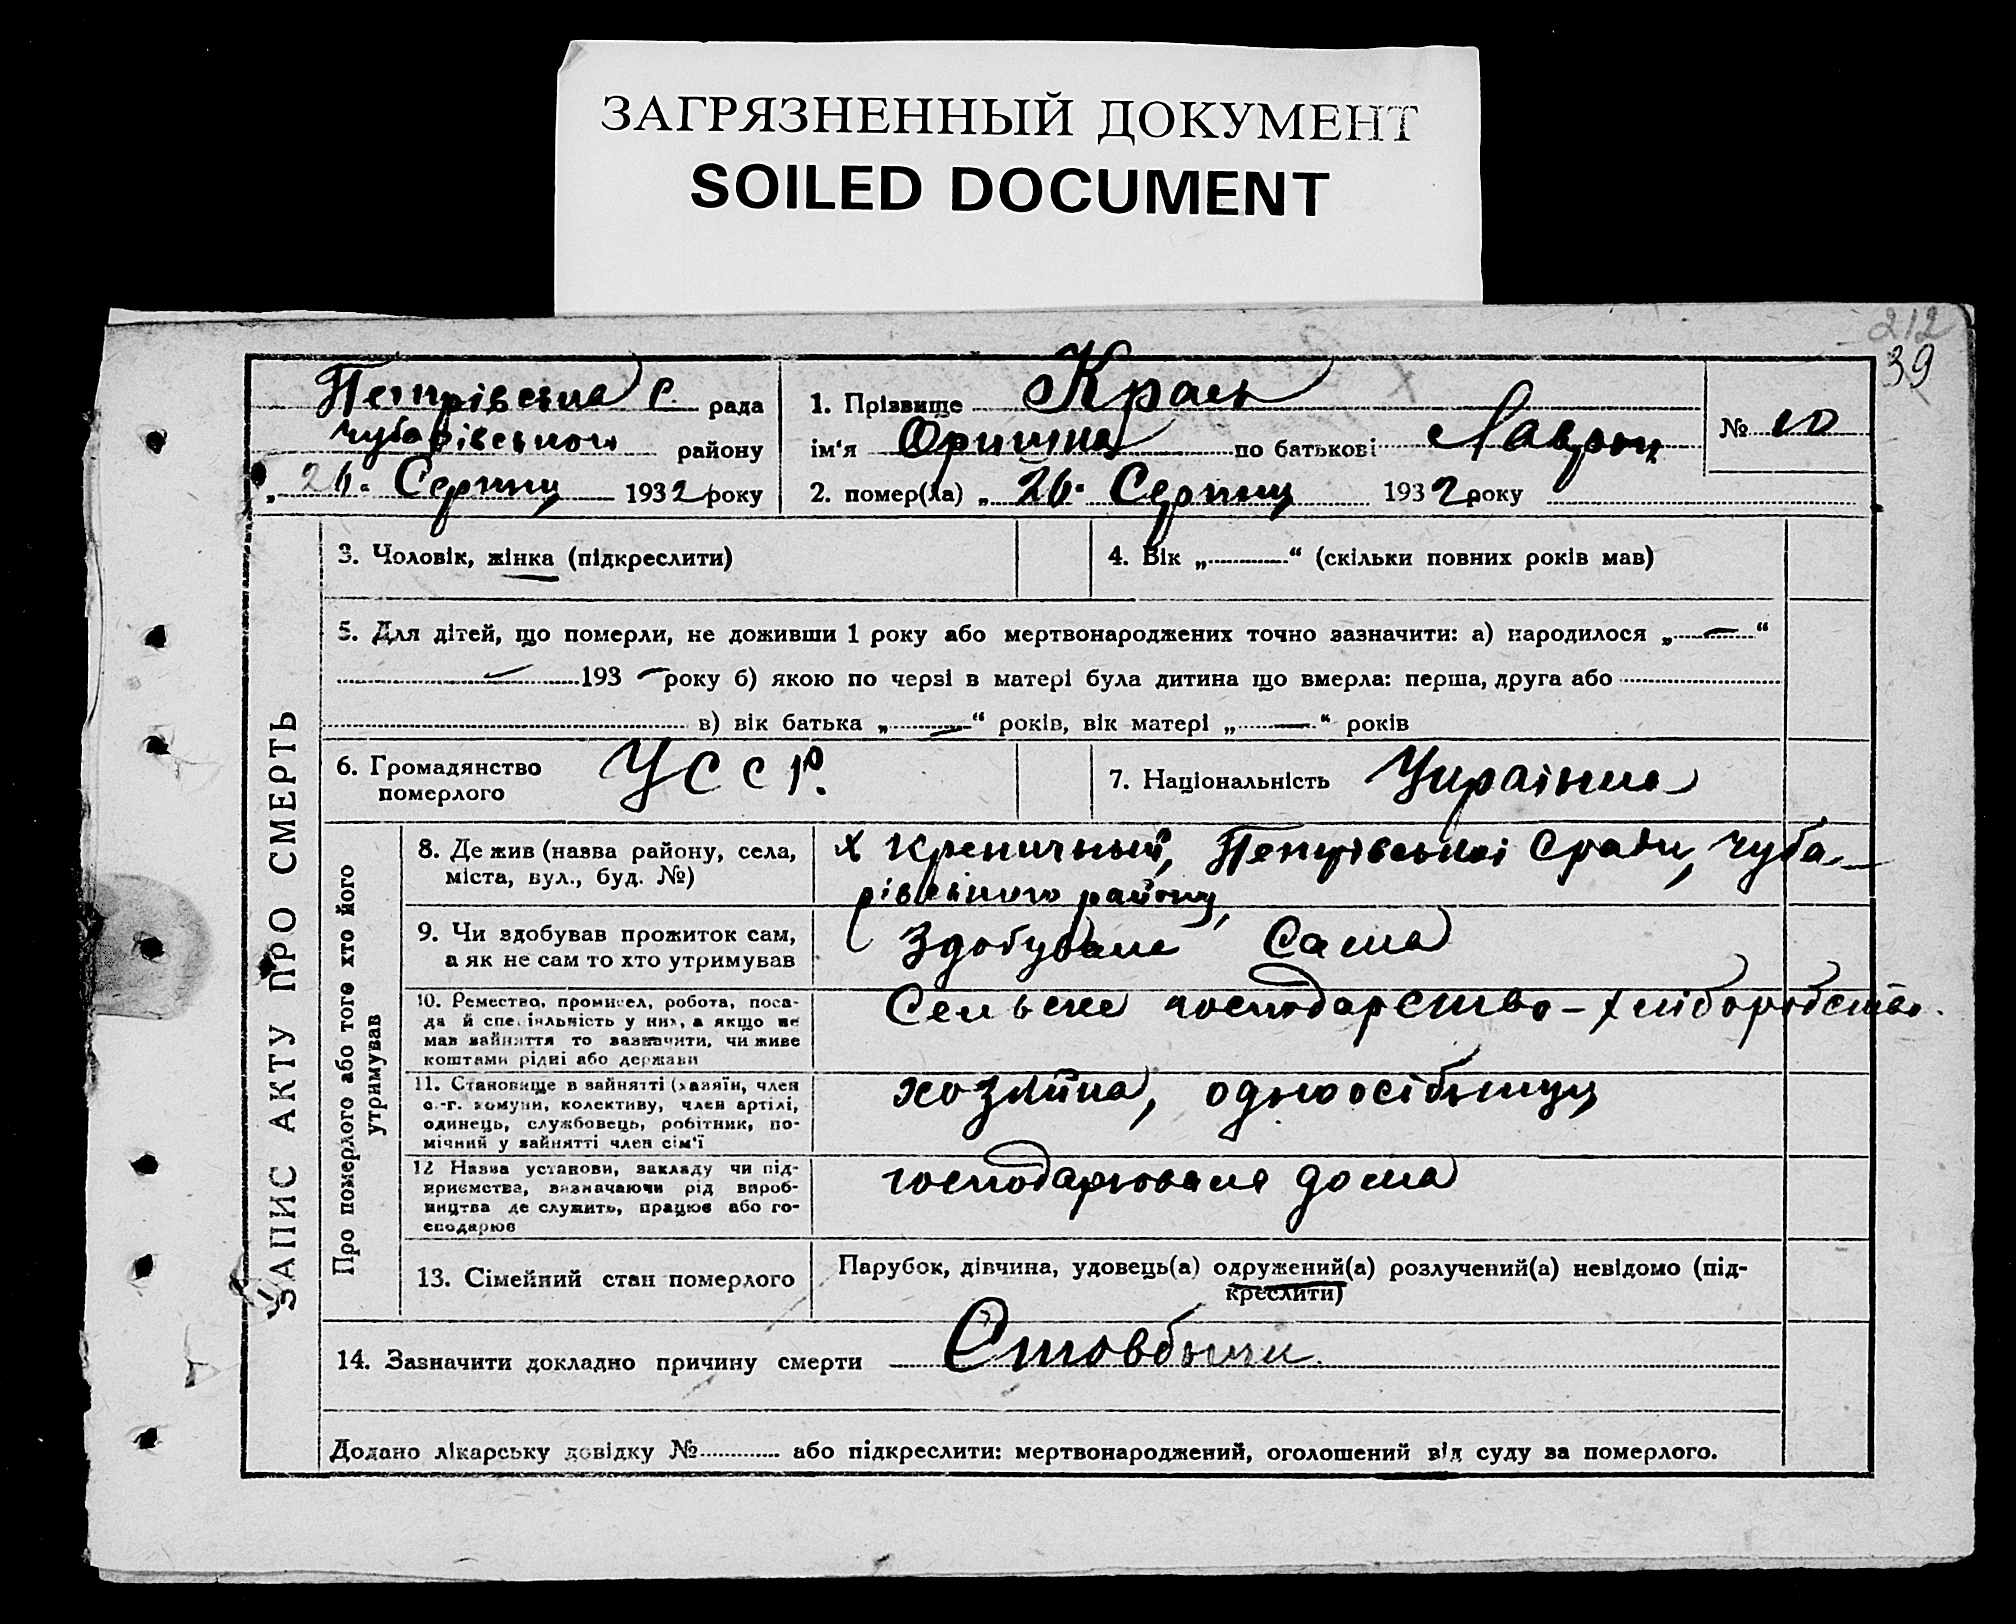 ЗАГРЯЗНЕННЫЙ ДОКУМЕНТ
SOILED DOCUMENT
212
39
Петрівська С. рада
Чубарівського району
„ 26. Серпня 1932 року
1. Прізвище Крась
ім‘я Оришка по батькові Лаврон
№ 10
2. помер(ла) „ 26. Серпня 1932 року
ЗАПИС АКТУ ПРО СМЕРТЬ
3. Чоловік, жінка (підкреслити)
4. Вік „ “ (скільки повних років мав)
5. Для дітей, що померли, не доживши 1 року або мертвонароджених точно зазначити: а) народилося „ — “
— 193 — року б) якою по черзі в матері була дитина що вмерла: перша, друга або
в) вік батька „ — “ років, вік матері „ — “ років
6. Громадянство
померлого
УССР.
7. Національність Українка
Про померлого або того хто його
утримував
8. Де жив (назва району, села,
міста, вул., буд. №)
х Креничный, Петрівської Сради, Чуба-
рівського району,
9. Чи здобував прожиток сам,
а як не сам то хто утримував
Здобувала Сама
10. Ремество, промисел, робота, поса-
да й спеціяльність у них, а якщо не
мав зайняття то зазначити, чи живе
коштами рідні або держави
Сельске господарство – хліборобство.
11. Становище в зайнятті (хазяїн, член
с.-г. комуни, колективу, член артілі,
одинець, службовець, робітник, по-
мічний у зайнятті член сім‘ї
хозяйка, одноосібниця
12 Назва установи, закладу чи під-
приємства, зазначаючи рід вироб-
ництва де служить, працює або го-
сподарює
господарювала дома
13. Сімейний стан померлого
Парубок, дівчина, удовець(а) одружений(а) розлучений(а) невідомо (під-
креслити)
14. Зазначити докладно причину смерти Стовбняк
Додано лікарську довідку № або підкреслити: мертвонароджений, оголошений від суду за померлого.